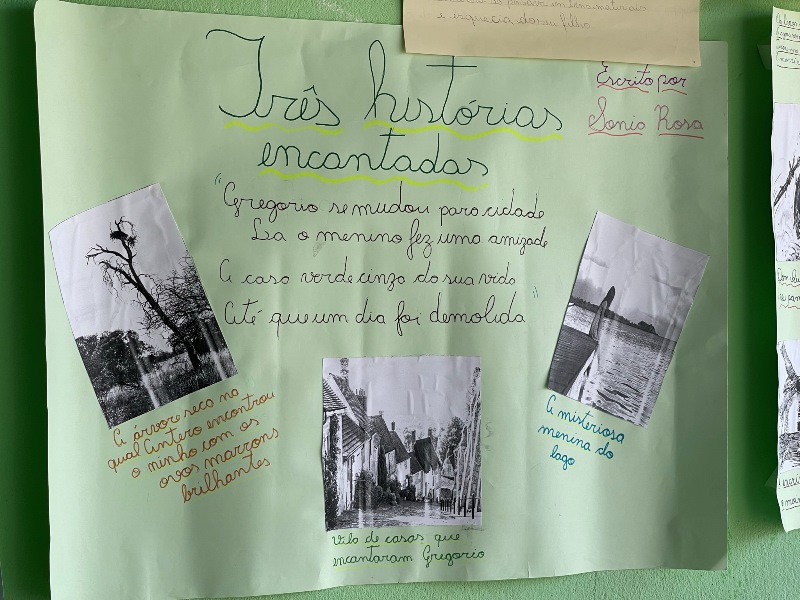 e riqueza do seu filho
Três histórias
encantadas
Escrito por
Sonia Rosa
"Gregorio se mudou para cidade
La o menino fez uma amizade
A casa verde cinza da sua vida
Até que um dia foi demolida"
A árvore seca na
qual Cintero encontrou
o ninho com os
ovos marrons
brilhantes
Vila de casas que
encantaram Gregorio
A misteriosa
menina do
lago